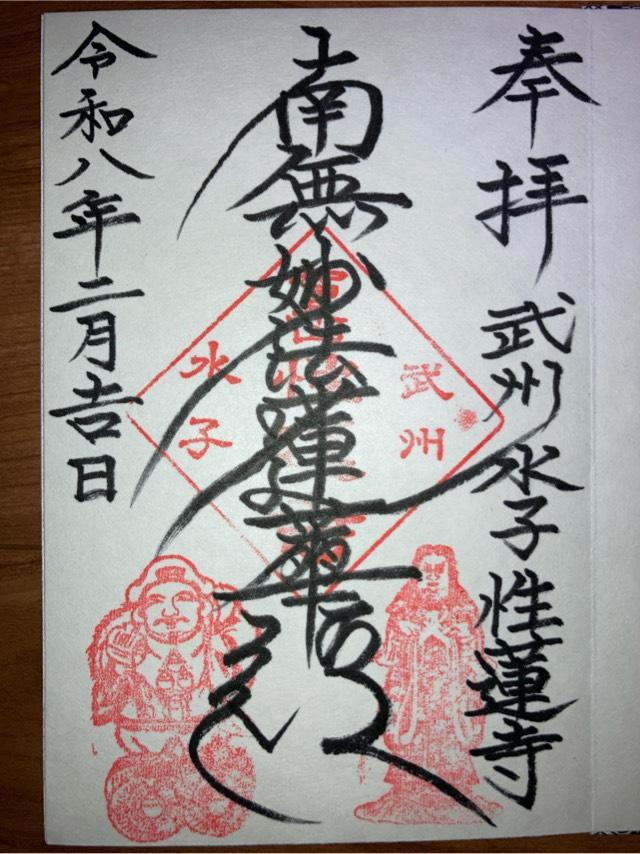 奉拝
武州水子性蓮寺
南無妙法蓮華経
令和八年二月吉日
武州
水子